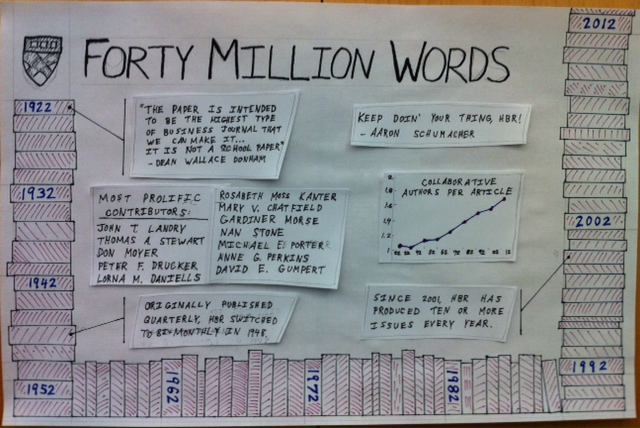 FORTY MILLION WORDS
2012
1922
"THE PAPER IS INTENDED
TO BE THE HIGHEST TYPE
OF BUSINESS JOURNAL THAT
WE CAN MAKE IT...
IT IS NOT A SCHOOL PAPER"
- DEAN WALLACE DONHAM
KEEP DOIN' YOUR THING, HBR!
- AARON SCHUMACHER
1932
MOST PROLIFIC
CONTRIBUTORS:
JOHN T. LANDRY
THOMAS A. STEWART
DON MOYER
PETER F. DRUCKER
LORNA M. DANIELLS
ROSABETH MOSS KANTER
MARY V. CHATFIELD
GARDINER MORSE
NAN STONE
MICHAEL E. PORTER
ANNE G. PERKINS
DAVID E. GUMPERT
COLLABORATIVE
AUTHORS PER ARTICLE
2
1.8
1.6
1.4
1.2
2002
1942
ORIGINALLY PUBLISHED
QUARTERLY, HBR SWITCHED
TO BI-MONTHLY IN 1948.
SINCE 2001, HBR HAS
PRODUCED TEN OR MORE
ISSUES EVERY YEAR.
1952
1962
1972
1982
1992